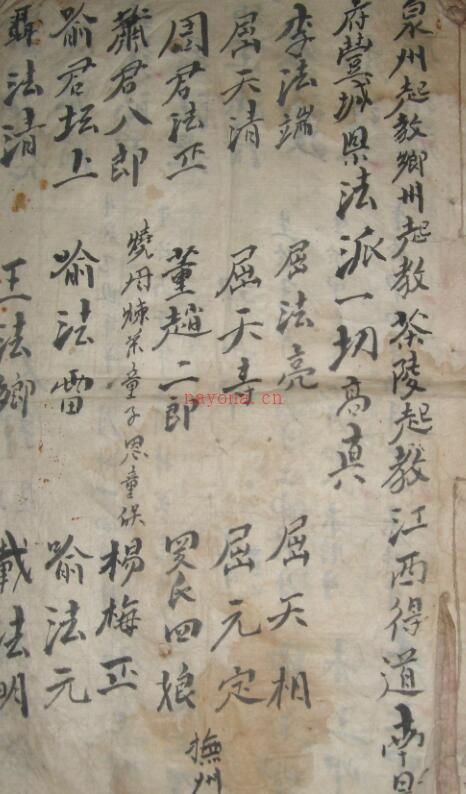 泉州起教鄉州起教茶陵起教江西得道南昌
府豐城県法派一切高真
李法端 屈法亮 屈天相
屈天清 屈天喜 屈元定
周君法正 董趙二郎 罗氏四娘 撫州
蕭君八郎 燒丹煉茶童子恩童侯 楊梅正
喻君坛上 喻法雷 喻法元
聶法清 王法鄉 戴法明
nayona.cn